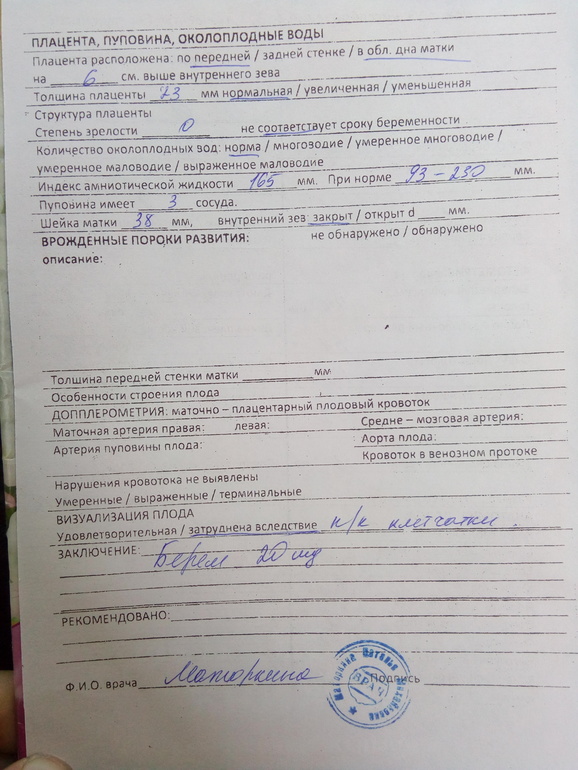 ПЛАЦЕНТА, ПУПОВИНА, ОКОЛОПЛОДНЫЕ ВОДЫ
Плацента расположена: по передней / задней стенке / в обл. дна матки
на 6 см. выше внутреннего зева
Толщина плаценты 23 мм нормальная / увеличенная / уменьшенная
Структура плаценты
Степень зрелости 0 не соответствует сроку беременности
Количество околоплодных вод: норма / многоводие / умеренное многоводие /
умеренное маловодие / выраженное маловодие
Индекс амниотической жидкости 165 мм. При норме 93 – 230 мм.
Пуповина имеет 3 сосуда.
Шейка матки 38 мм, внутренний зев закрыт / открыт d мм.
ВРОЖДЕННЫЕ ПОРОКИ РАЗВИТИЯ: не обнаружено / обнаружено
описание:
Толщина передней стенки матки мм
Особенности строения плода
ДОППЛЕРОМЕТРИЯ: маточно – плацентарный плодовый кровоток
Маточная артерия правая: левая: Средне – мозговая артерия:
Артерия пуповины плода: Аорта плода:
Кровоток в венозном протоке
Нарушения кровотока не выявлены
Умеренные / выраженные / терминальные
ВИЗУАЛИЗАЦИЯ ПЛОДА
Удовлетворительная / затруднена вследствие п/к клетчатки.
ЗАКЛЮЧЕНИЕ: Берем 20 нд
РЕКОМЕНДОВАНО:
Ф.И.О. врача Маторкина Подпись
Маторкина Наталья Михайловна
ВРАЧ